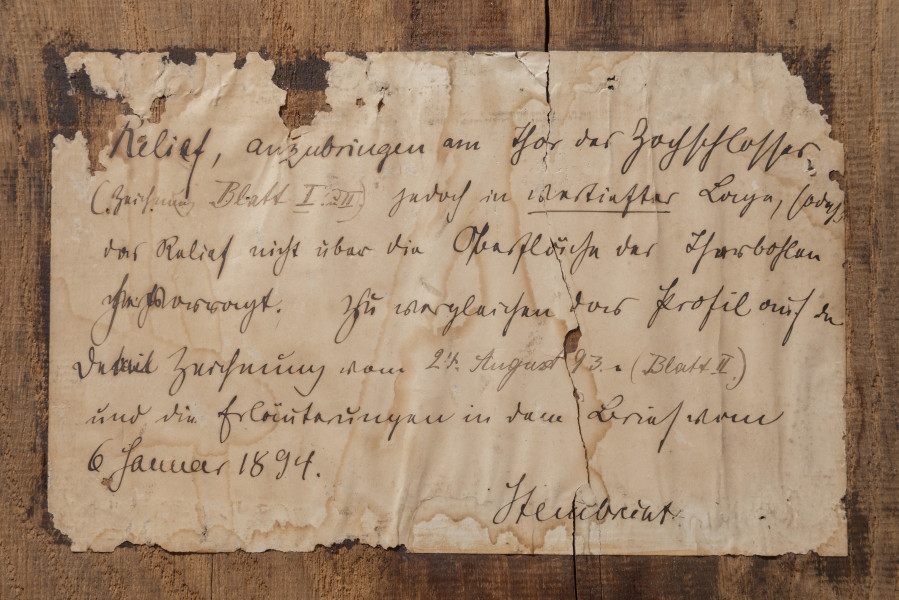 Relief, anzubringen am Thor des Hochschlosses
(Zeichnung Blatt I und II) jedoch in vertiefter Lage, sodaß
das Relief nicht über die Oberfläche der Thorbohlen
hervorragt. Zu vergleichen das Profil auf der
Detail Zeichnung vom 24. August 93. (Blatt II.)
und die Erläuterungen in dem Brief vom
6 Januar 1894.
Steinbrecht.